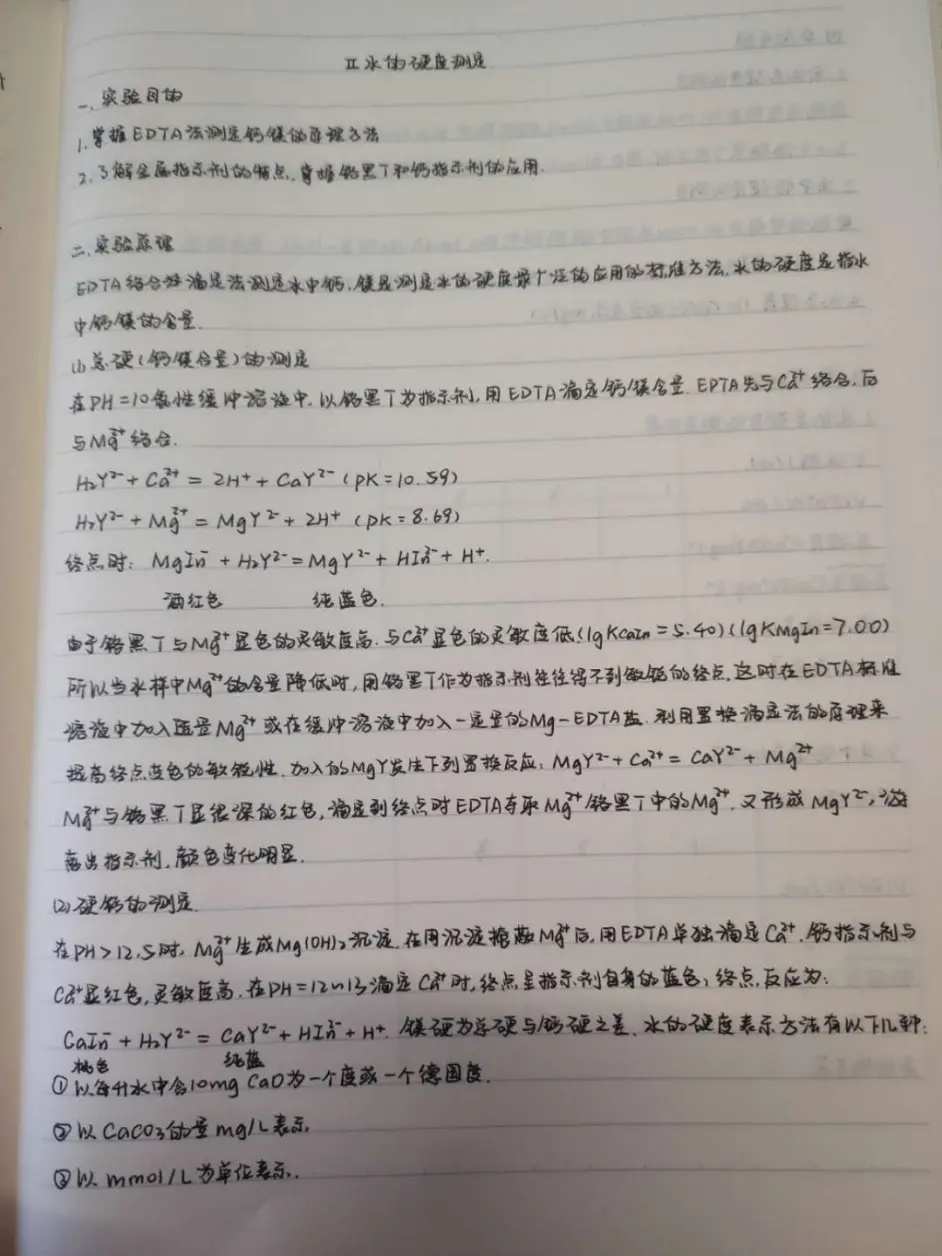 II 水的硬度测定
一、实验目的
1. 掌握EDTA法测定钙镁的原理方法
2. 了解金属指示剂的特点,掌握铬黑T和钙指示剂的应用.
二、实验原理
EDTA络合滴定法测定水中钙、镁是测定水的硬度最广泛的应用的标准方法,水的硬度是指水
中钙镁的含量.
(1) 总硬(钙镁含量)的测定
在PH=10氨性缓冲溶液中,以铬黑T为指示剂,用EDTA滴定钙镁含量. EPTA先与Ca²⁺络合,后
与Mg²⁺络合.
H₂Y²⁻ + Ca²⁺ = 2H⁺ + CaY²⁻ (pK=10.59)
H₂Y²⁻ + Mg²⁺ = MgY²⁻ + 2H⁺ (pK=8.69)
终点时: MgIn⁻ + H₂Y²⁻ = MgY²⁻ + HIn²⁻ + H⁺.
酒红色 纯蓝色.
由于铬黑T与Mg²⁺显色的灵敏度高,与Ca²⁺显色的灵敏度低(lgKcaIn=5.40)(lgKMgIn=7.00)
所以当水样中Mg²⁺的含量降低时,用铬黑T作为指示剂往往得不到敏锐的终点,这时在EDTA标准
溶液中加入适量Mg²⁺或在缓冲溶液中加入一定量的Mg-EDTA盐,利用置换滴定法的原理来
提高终点变色的敏锐性,加入的MgY发生下列置换反应: MgY²⁻ + Ca²⁺ = CaY²⁻ + Mg²⁺
Mg²⁺与铬黑T显很深的红色,滴定到终点时EDTA夺取Mg²⁺铬黑T中的Mg²⁺,又形成MgY²⁻,游
离出指示剂,颜色变化明显.
(2) 硬钙的测定.
在PH>12.5时, Mg²⁺生成Mg(OH)₂沉淀,在用沉淀掩蔽Mg²⁺后,用EDTA单独滴定Ca²⁺. 钙指示剂与
Ca²⁺显红色,灵敏度高,在PH=12~13滴定Ca²⁺时,终点呈指示剂自身的蓝色,终点反应为:
CaIn⁻ + H₂Y²⁻ = CaY²⁻ + HIn²⁻ + H⁺. 镁硬为总硬与钙硬之差,水的硬度表示方法有以下几种:
桃色 纯蓝
① 以每升水中含10mg CaO为一个度或一个德国度.
② 以CaCO₃的量mg/L表示.
③ 以mmol/L为单位表示.